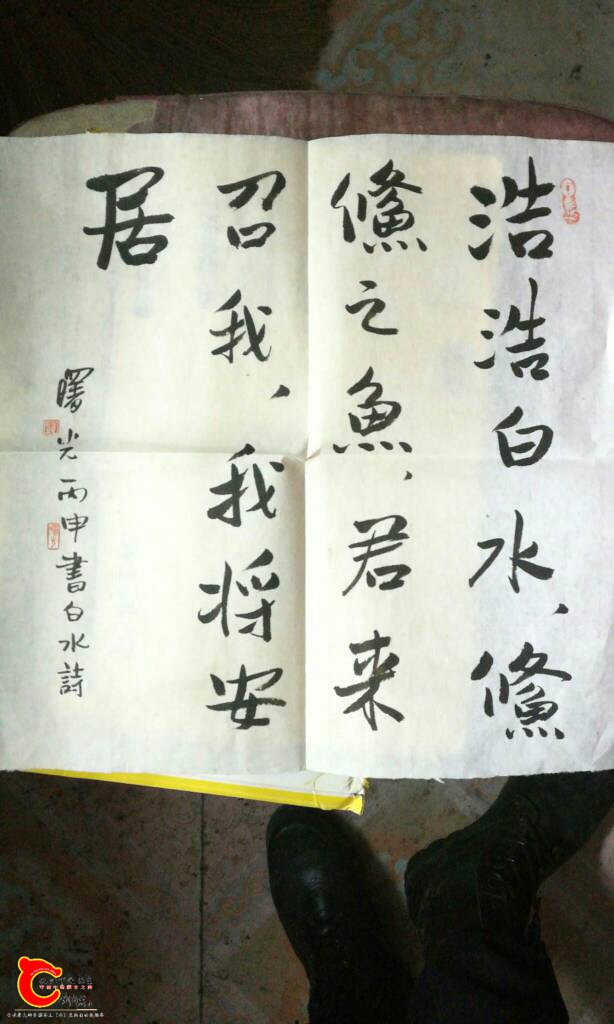 浩浩白水，鯈
鯈之魚，君来
召我，我将安
居
曙光丙申書白水詩